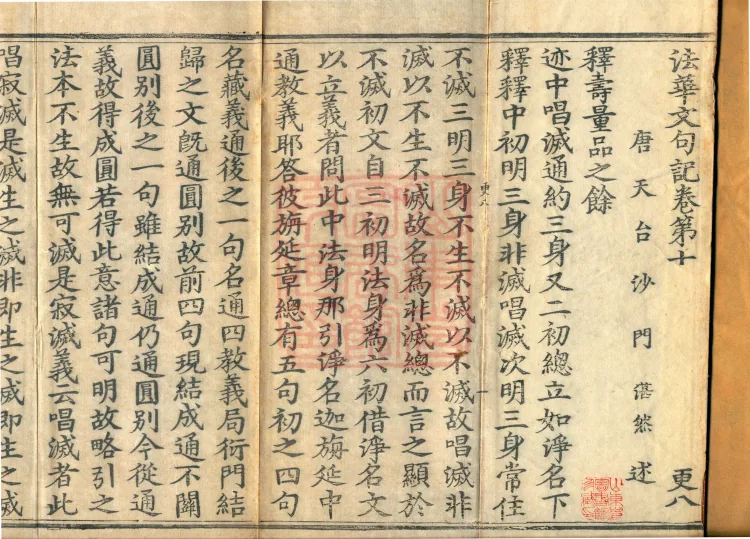 法華文句記卷第十
更八
唐天台沙門湛然述
釋壽量品之餘
迹中唱滅通約三身又二初總立如淨名下
釋釋中初明三身非滅唱滅次明三身常住
更八 一
不滅三明三身不生不滅以不滅故唱滅非
滅以不生不滅故名爲非滅總而言之顯於
不滅初文自三初明法身爲六初借淨名文
以立義者問此中法身那引淨名迦旃延中
通教義耶答彼旃延章總有五句初之四句
名藏義通後之一句名通四教義局衍門結
歸之文旣通圓別故前四句現結成通不關
圓別後之一句雖結成通仍通圓別今從通
義故得成圓若得此意諸句可明故略引之
法本不生故無可滅是寂滅義云唱滅者此
唱寂滅是滅生之滅非即生之滅即生之滅